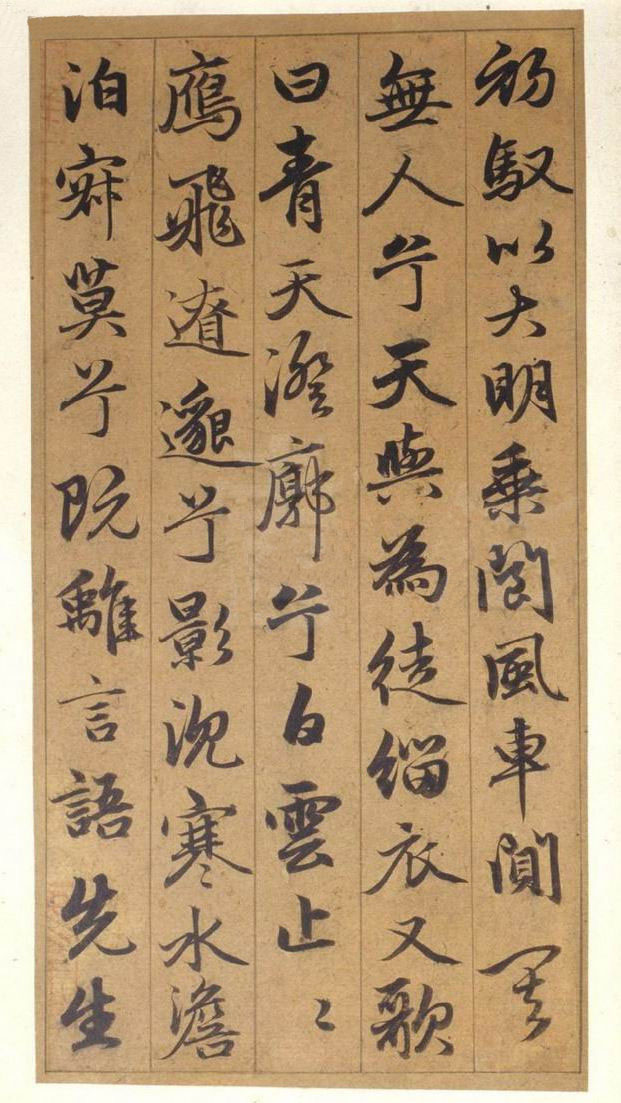 初馭以大明乘閬風車闃其
無人兮天與為徒緇衣又歌
曰青天澄廓兮白雲止〻
鴈飛遼邈兮影沉寒水澹
泊寂莫兮既離言語先生